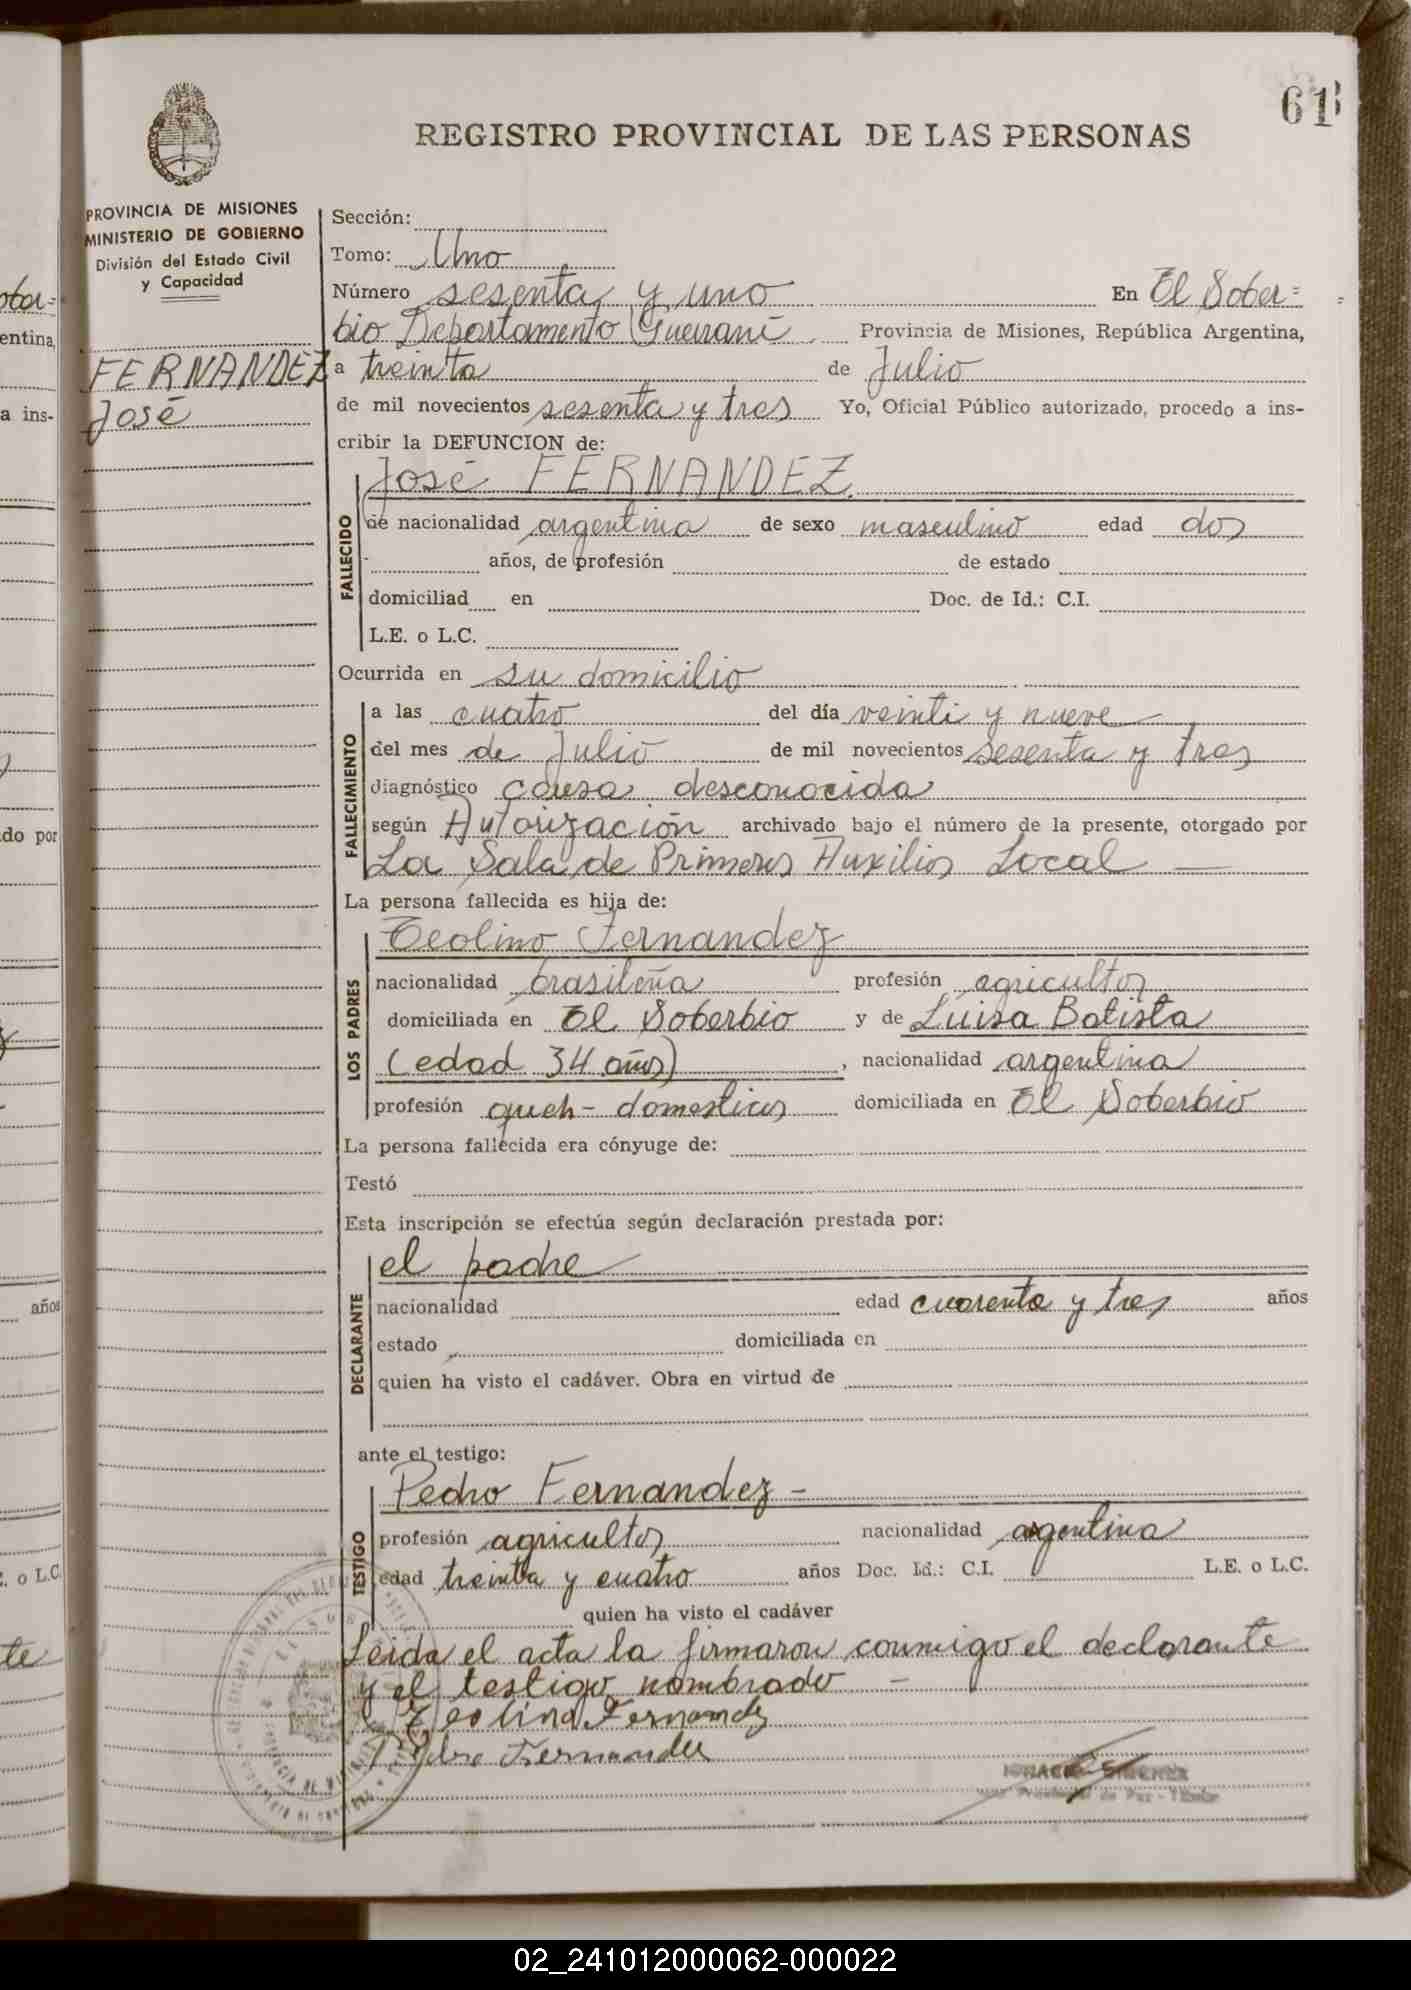 61
REGISTRO PROVINCIAL DE LAS PERSONAS
PROVINCIA DE MISIONES
MINISTERIO DE GOBIERNO
División del Estado Civil
y Capacidad
FERNANDEZ
José
Sección:
Tomo: Uno
Número sesenta y uno En El Sober=
bio Departamento Guaraní Provincia de Misiones, República Argentina,
a treinta de Julio
de mil novecientos sesenta y tres Yo, Oficial Público autorizado, procedo a ins-
cribir la DEFUNCION de:
José FERNANDEZ
FALLECIDO
de nacionalidad argentina de sexo masculino edad dos
años, de profesión de estado
domiciliad en Doc. de Id.: C.I.
L.E. o L.C.
Ocurrida en su domicilio
FALLECIMIENTO
a las cuatro del día veinti y nueve
del mes de Julio de mil novecientos sesenta y tres
diagnóstico causa desconocida
según Autorización archivado bajo el número de la presente, otorgado por
La Sala de Primeros Auxilios Local —
La persona fallecida es hija de:
LOS PADRES
Teolino Fernandez
nacionalidad brasileña profesión agricultor
domiciliada en El Soberbio y de Luisa Batista
(edad 34 años), nacionalidad argentina
profesión queh- domesticos domiciliada en El Soberbio
La persona fallecida era cónyuge de:
Testó
Esta inscripción se efectúa según declaración prestada por:
DECLARANTE
el padre
nacionalidad edad cuarenta y tres años
estado domiciliada en
quien ha visto el cadáver. Obra en virtud de
ante el testigo:
TESTIGO
Pedro Fernandez -
profesión agricultor nacionalidad argentina
edad treinta y cuatro años Doc. Id.: C.I. L.E. o L.C.
quien ha visto el cadáver
Leida el acta la firmaron conmigo el declarante
y el testigo nombrado —
Teolino Fernandez
Pedro Fernandez
entina,
a ins-
do por
años
E. o L.C.
te
02_241012000062-000022